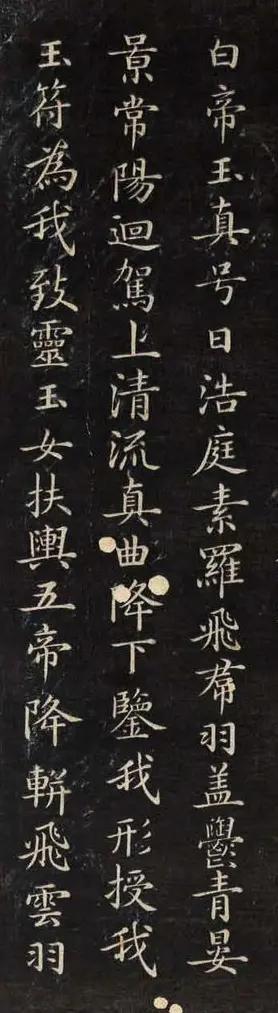 白帝玉真号曰浩庭素羅飛帬羽盖鬱青晏
景常陽迴駕上清流真曲降下鑒我形授我
玉符為我致靈玉女扶輿五帝降軿飛雲羽